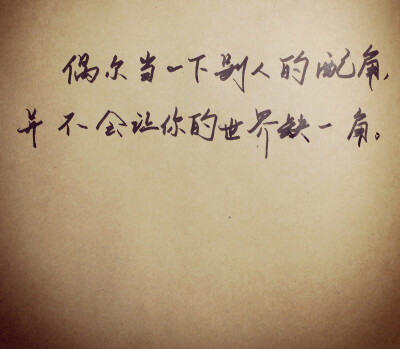 偶尔当一下别人的配角,
并不会让你的世界缺一角。